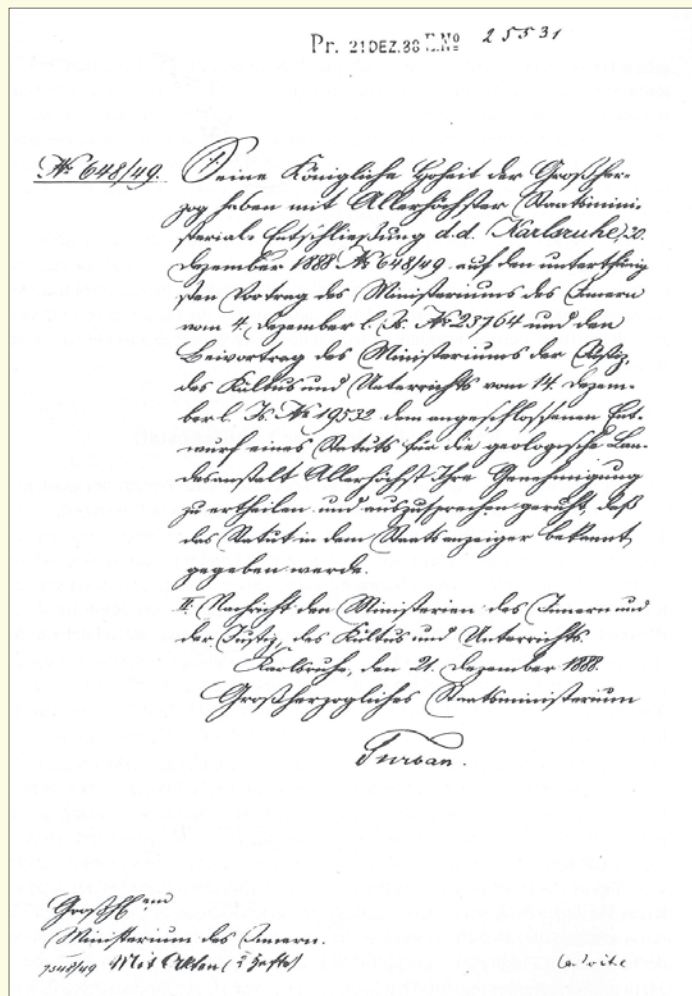 Pr. 21 DEZ. 88 E.Nº 25531
№ 648/49. I. Seine Königliche Hoheit der Großher-
zog haben mit Allerhöchster Staatsmini-
sterial-Entschließung d.d. Karlsruhe, 20.
Dezember 1888 № 648/49 auf den unterthänig
sten Vortrag des Ministeriums des Innern
vom 4. Dezember l. Js. № 23764 und den
Beivortrag des Ministeriums der Justiz,
des Kultus und Unterrichts vom 14. Dezem-
ber l. Js. № 19532 dem angeschlossenen Ent-
wurf eines Statuts für die geologische Lan-
desanstalt Allerhöchst Ihre Genehmigung
zu ertheilen und auszusprechen geruht, daß
das Statut in dem Staatsanzeiger bekannt
gegeben werde.
II. Nachricht den Ministerien des Innern und
der Justiz, des Kultus und Unterrichts.
Karlsruhe, den 21. Dezember 1888.
Großherzogliches Staatsministerium
Turban.
Ministerium des Innern.
Mit Akten (2 Hefte)